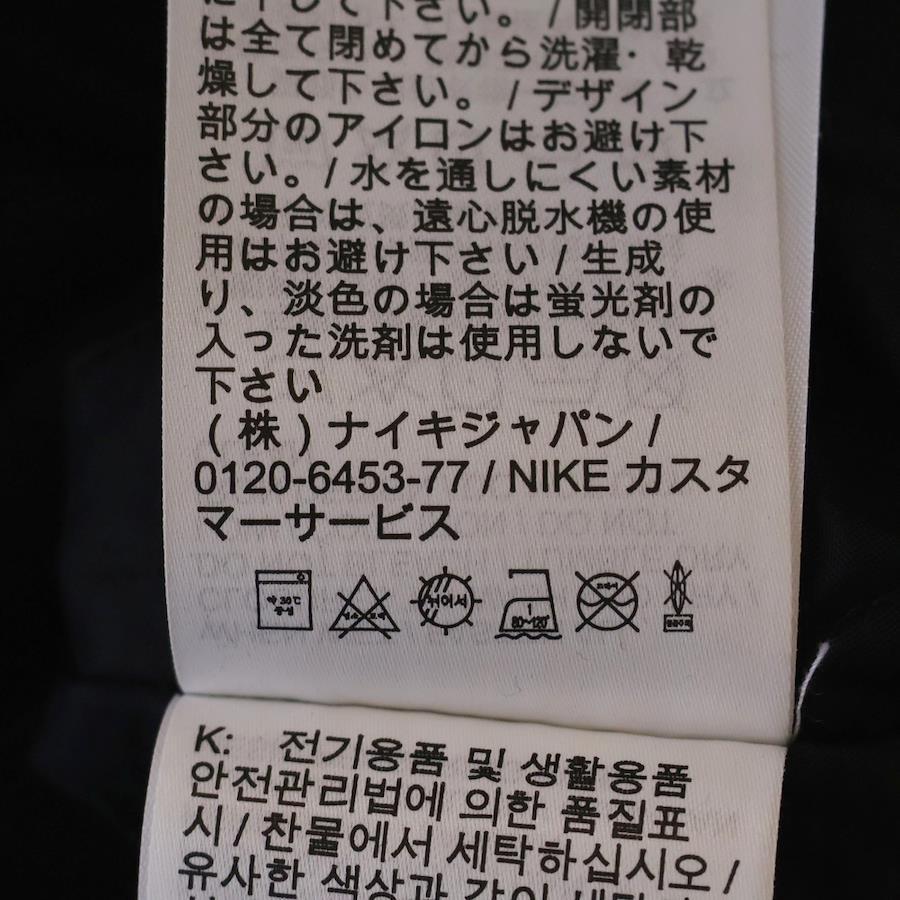 に干して下さい。/ 開閉部
は全て閉めてから洗濯・乾
燥して下さい。/ デザイン
部分のアイロンはお避け下
さい。/ 水を通しにくい素材
の場合は、遠心脱水機の使
用はお避け下さい / 生成
り、淡色の場合は蛍光剤の
入った洗剤は使用しないで
下さい
(株) ナイキジャパン /
0120-6453-77 / NIKE カスタ
マーサービス
약 30℃ 중성 뉘어서 1 80~120° 드라이 손으로약하게
K: 전기용품 및 생활용품
안전관리법에 의한 품질표
시 / 찬물에서 세탁하십시오 /
유사한 색상과 같이 세탁